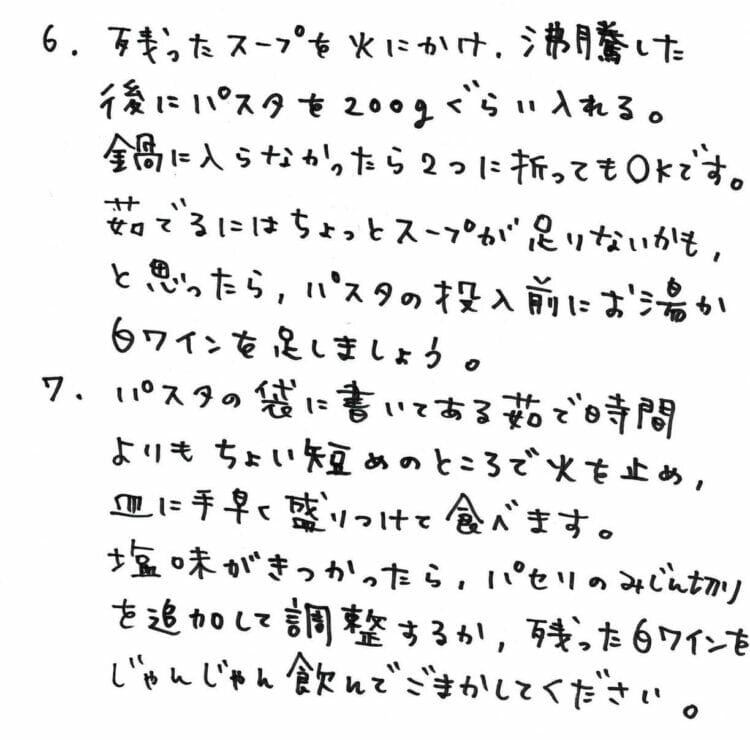 6. 残ったスープを火にかけ、沸騰した
後にパスタを200gぐらい入れる。
鍋に入らなかったら2つに折ってもOKです。
茹でるにはちょっとスープが足りないかも、
と思ったら、パスタの投入前にお湯か
白ワインを足しましょう。
7. パスタの袋に書いてある茹で時間
よりもちょい短めのところで火を止め、
皿に手早く盛りつけて食べます。
塩味がきつかったら、パセリのみじん切り
を追加して調整するか、残った白ワインを
じゃんじゃん飲んでごまかしてください。